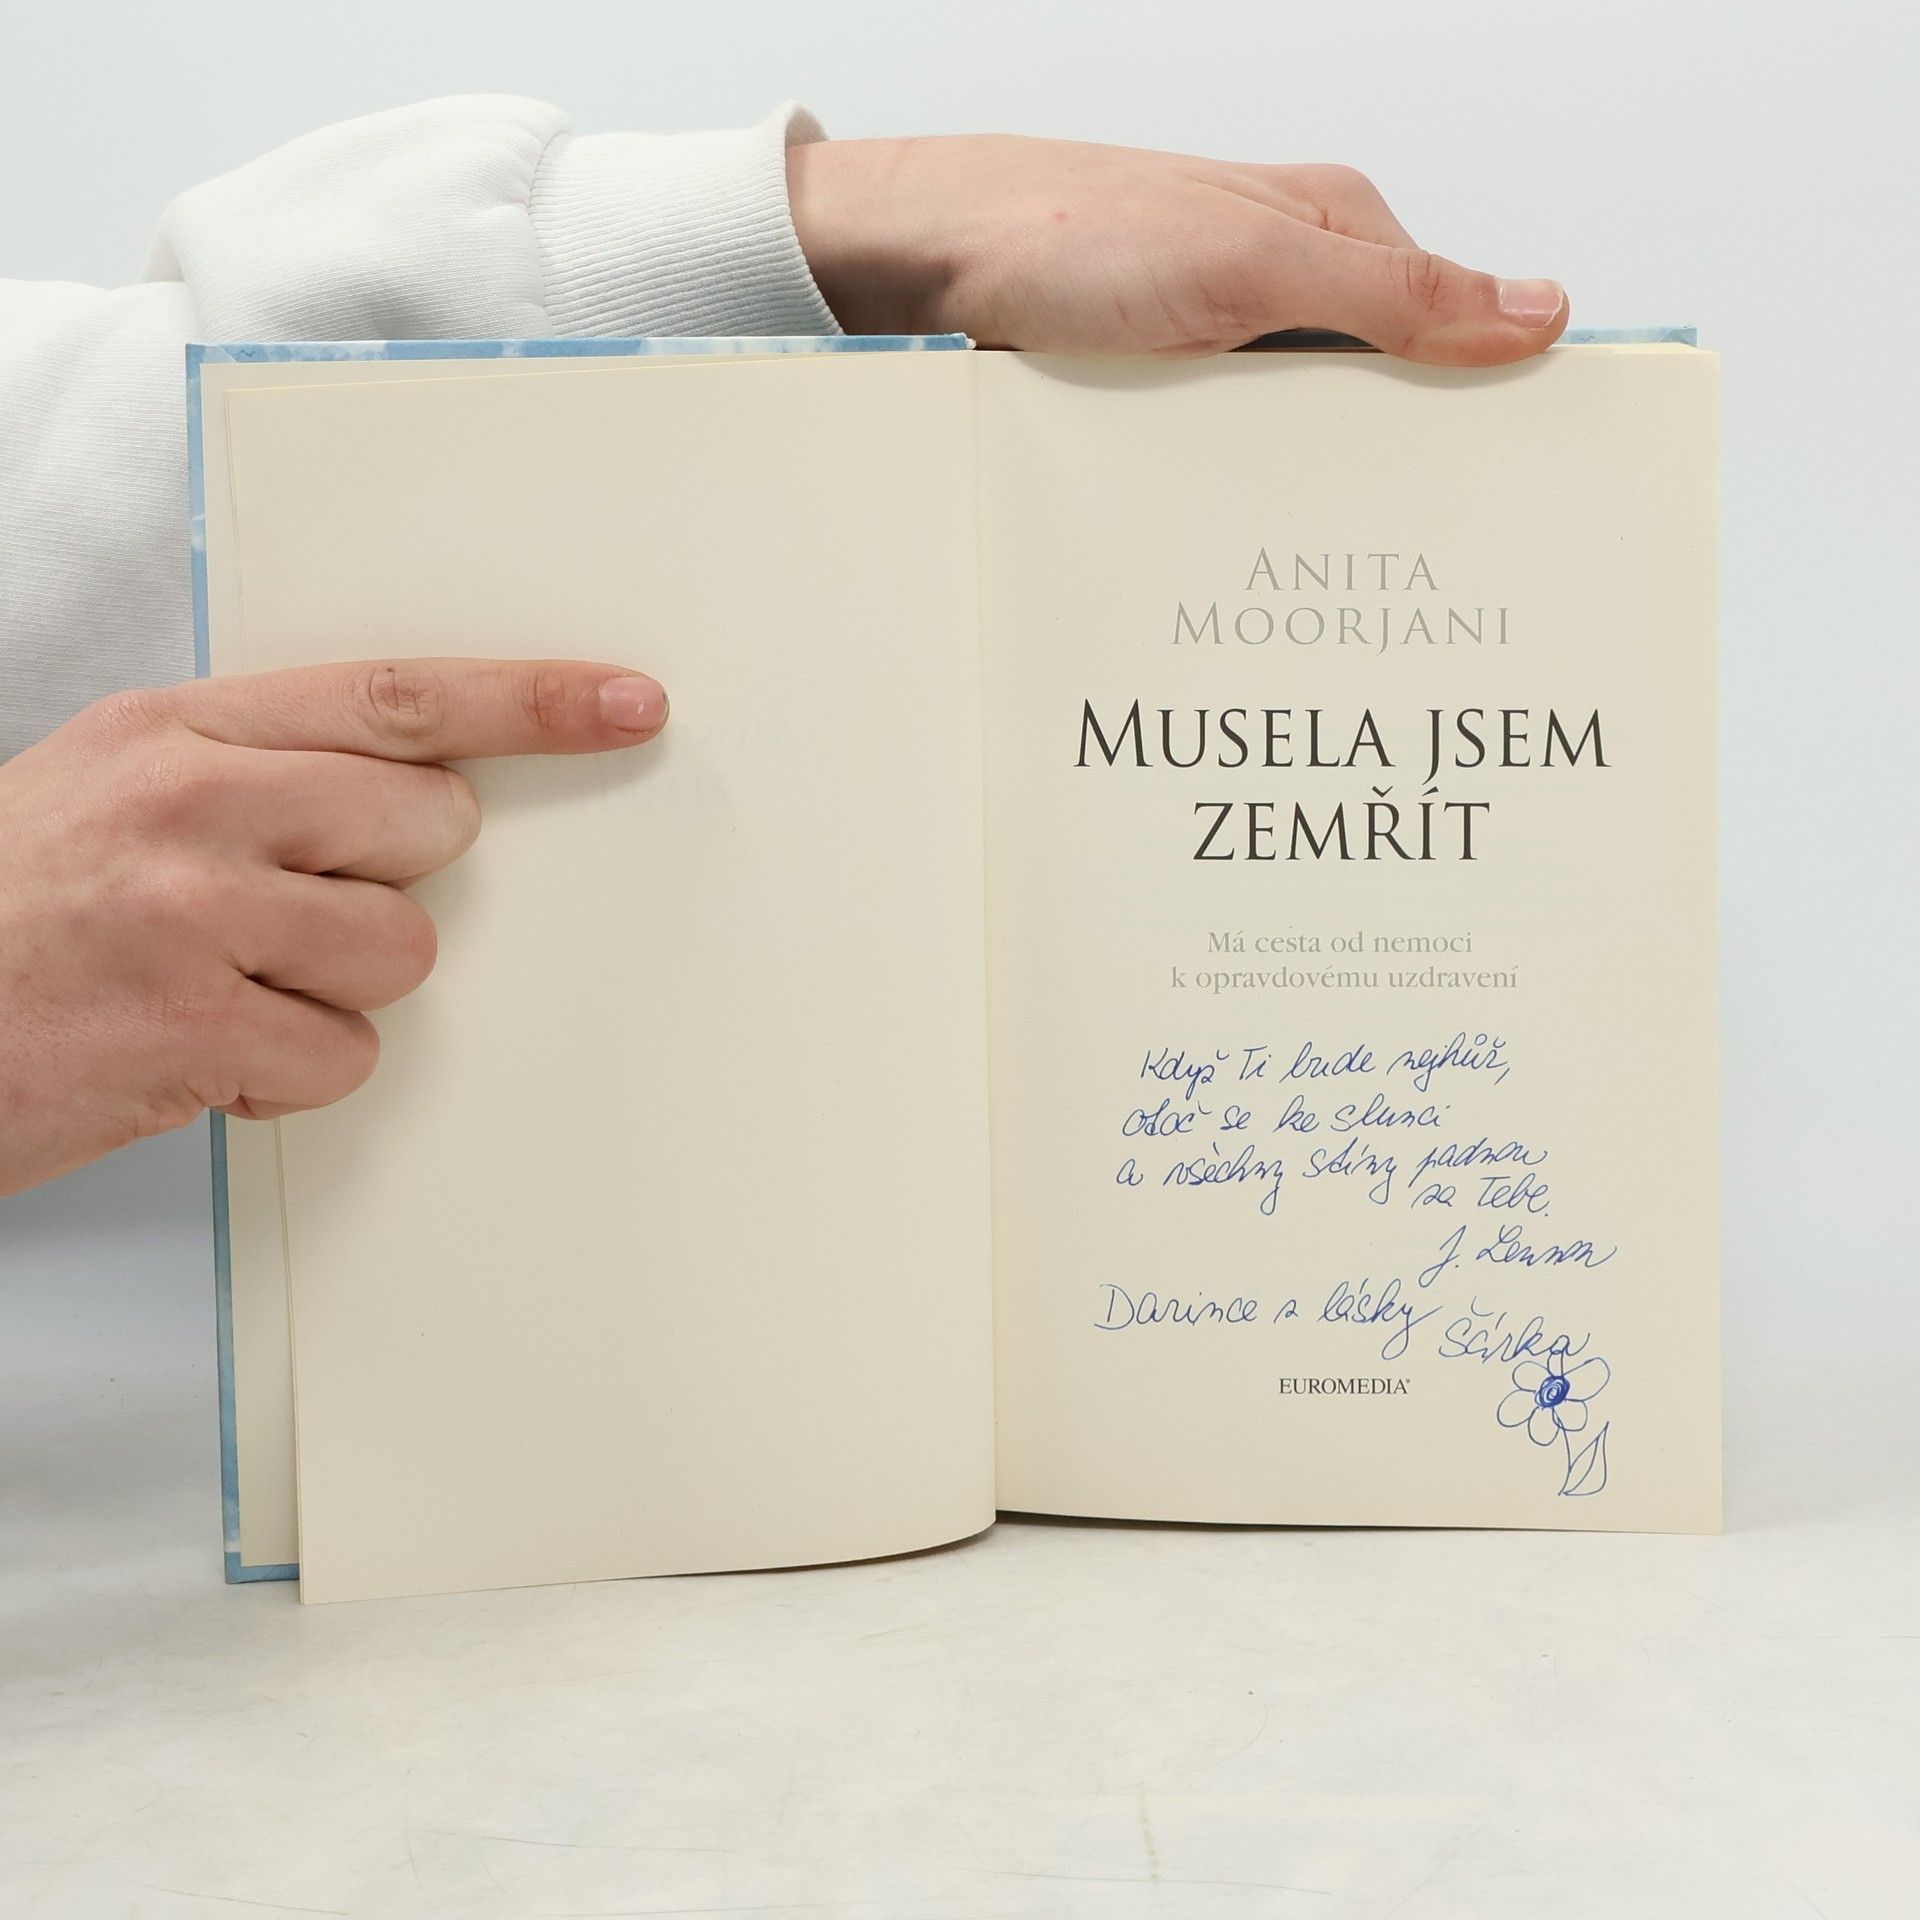 ANITA
MOORJANI
MUSELA JSEM
ZEMŘÍT
Má cesta od nemoci
k opravdovému uzdravení
Když Ti bude nejhůř,
otoč se ke slunci
a všechny stíny padnou
za Tebe.
J. Lennon
Darince z lásky
Šárka
EUROMEDIA®